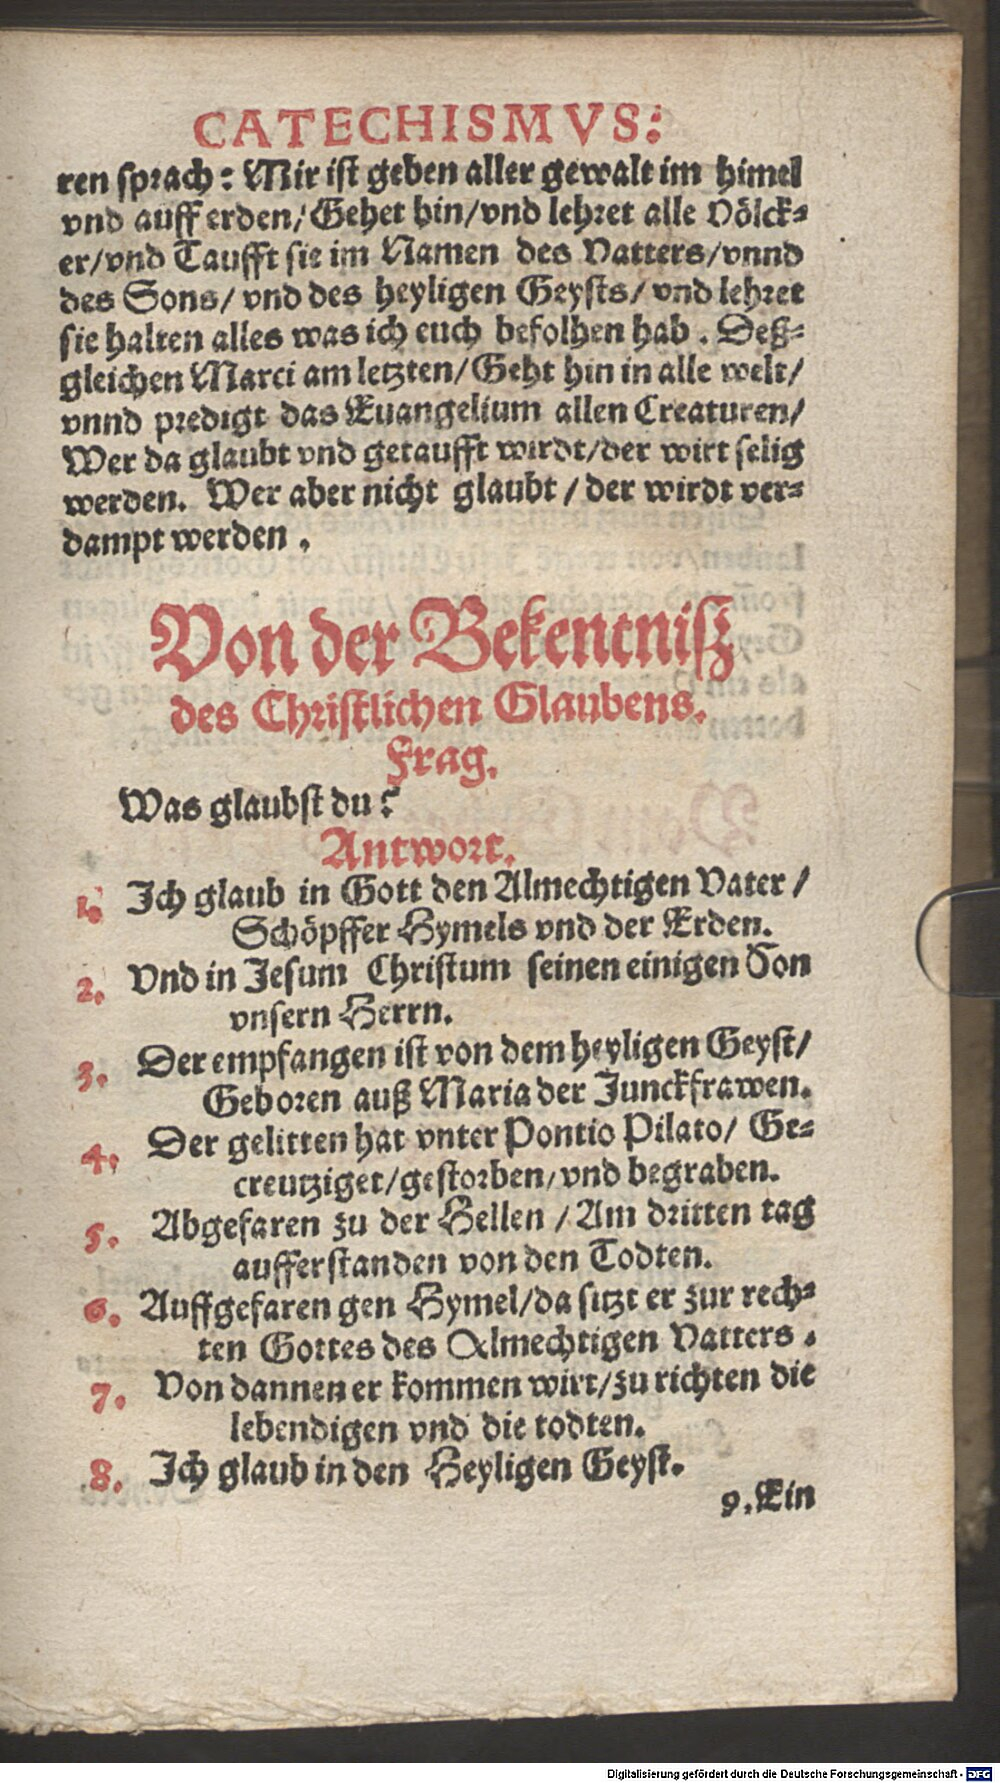 CATECHISMVS:
ren sprach: Mir ist geben aller gewalt im himel
vnd auff erden/ Gehet hin/vnd lehret alle Völck-
er/vnd Taufft sie im Namen des Vatters/vnnd
des Sons/ vnd des heyligen Geysts/ vnd lehret
sie halten alles was ich euch befolhen hab. Deß-
gleichen Marci am letzten/ Geht hin in alle welt/
vnnd predigt das Euangelium allen Creaturen/
Wer da glaubt vnd getaufft wirdt/der wirt selig
werden. Wer aber nicht glaubt / der wirdt ver-
dampt werden.
Von der Bekentnisz
des Christlichen Glaubens.
Frag.
Was glaubst du?
Antwort.
1. Ich glaub in Gott den Almechtigen Vater /
Schöpffer Hymels vnd der Erden.
2. Vnd in Jesum Christum seinen einigen Son
vnsern Herrn.
3. Der empfangen ist von dem heyligen Geyst/
Geboren auß Maria der Junckfrawen.
4. Der gelitten hat vnter Pontio Pilato/ Ge-
creutziget/gestorben/vnd begraben.
5. Abgefaren zu der Hellen / Am dritten tag
aufferstanden von den Todten.
6. Auffgefaren gen Hymel/da sitzt er zur rech-
ten Gottes des Almechtigen Vatters.
7. Von dannen er kommen wirt/zu richten die
lebendigen vnd die todten.
8. Ich glaub in den Heyligen Geyst.
9. Ein
Digitalisierung gefördert durch die Deutsche Forschungsgemeinschaft - DFG